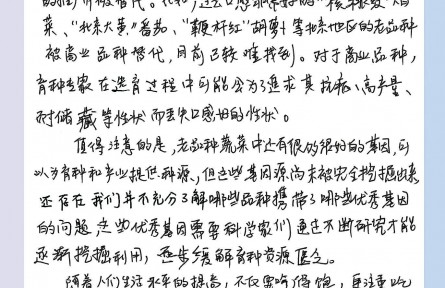 菜、"北京大黄"番茄、"鞭杆红"胡萝卜等北京地区的老品种
被商业品种替代,目前已较难找到。对于商业品种,
育种专家在选育过程中可能会为了追求其抗病、高产量、
耐储藏等性状而丢失口感好的性状。
值得注意的是,老品种蔬菜中还有很多很好的基因,可
以为育种和产业提供种源,但这些基因源尚未被完全挖掘出来
还存在我们并不充分了解哪些品种携带了哪些优秀基因
的问题,这些优秀基因需要科学家们通过不断研究才能
逐渐挖掘利用,逐步缓解育种资源匮乏。
随着人们生活水平的提高,不仅需吃得饱,更注重吃